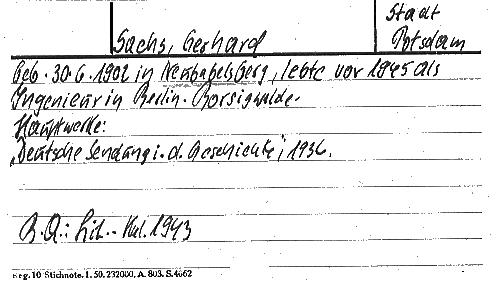 Stadt
Sachs, Gerhard Potsdam
Geb. 30.6.1902 in Neubabelsberg, lebte vor 1945 als
Ingenieur in Berlin-Borsigwalde.
Hauptwerke:
„Deutsche Sendung i. d. Geschichte", 1936.
B.Q.: Lit.-Kal. 1943
Reg. 10 Stichnote. 1. 50. 232000. A. 803. S. 4662